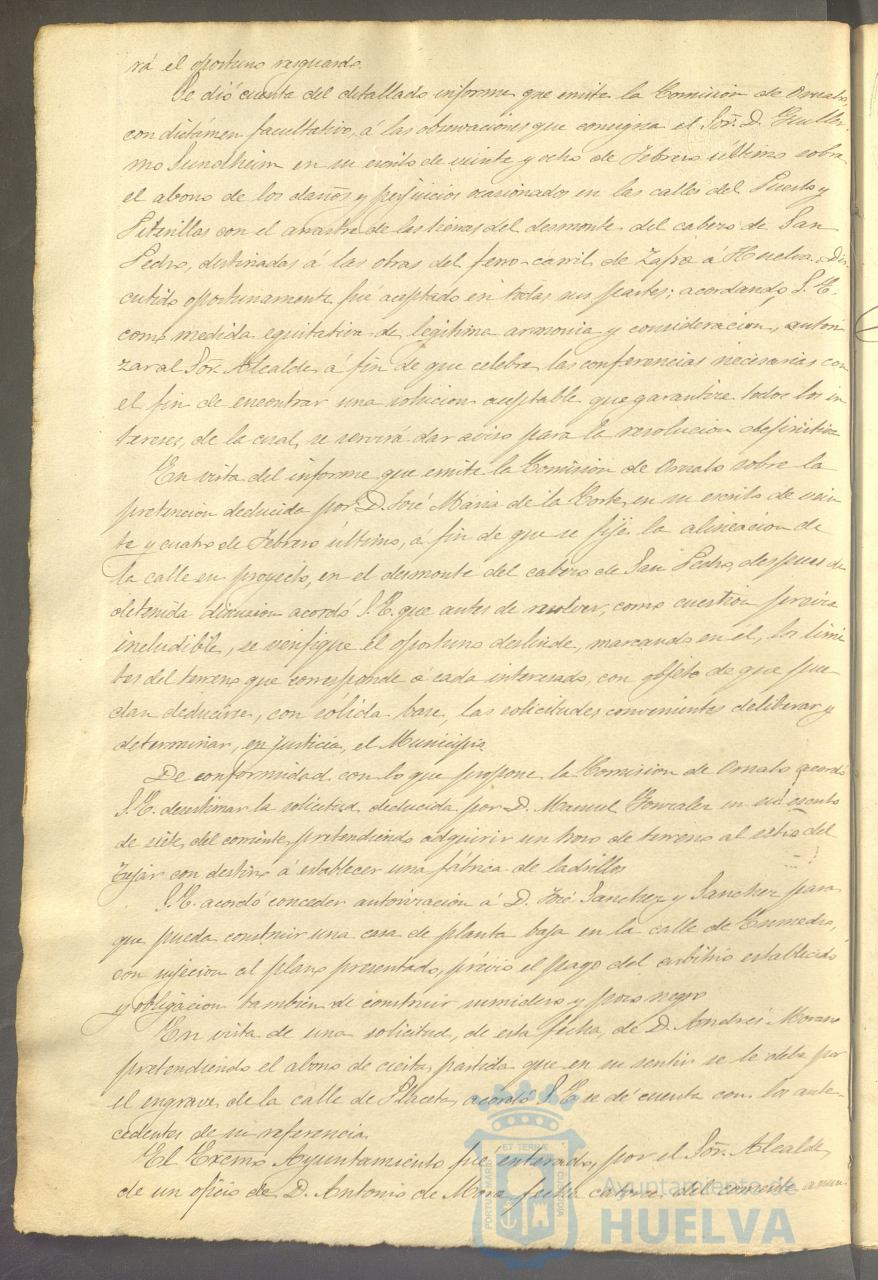 rá el oportuno resguardo.
Se dió cuenta del detallado informe que emite la Comision de Ornato,
con dictámen facultativo, á las observaciones que consigna el Sor. D. Guiller-
mo Sundheim en su escrito de veinte y ocho de Febrero último sobre
el abono de los daños y perjuicios ocasionados en las calles del Puerto y
Piterillas con el arrastre de las tierras del desmonte del cabezo de San
Pedro, destinadas á las obras del ferro-carril de Zafra á Huelva. Dis-
cutido oportunamente fué aceptado en todas sus partes; acordando, S. E.
como medida equitativa de legítima armonia y consideracion, autori-
zar al Sor. Alcalde á fin de que celebre las conferencias necesarias con
el fin de encontrar una solucion aceptable que garantice todos los in-
tereses, de la cual, se servirá dar aviso para la resolucion definitiva
En vista del informe que emite la Comision de Ornato sobre la
pretencion deducida por D. José Maria de la Corte, en su escrito de vein-
te y cuatro de Febrero último, á fin de que se fije la alineacion de
la calle en proyecto, en el desmonte del cabezo de San Pedro, despues de
detenida discusion acordó S. E. que antes de resolver, como cuestion previa
ineludible, se verifique el oportuno deslinde, marcando en él, los limi-
tes del terreno que corresponde á cada interesado, con objeto de que pue-
dan deducirse, con sólida base, las solicitudes convenientes deliberar y
determinar, en justicia, el Municipio.
De conformidad con lo que propone la Comision de Ornato acordó
S. E. desestimar la solicitud deducida por D. Manuel Gonzalez en su escrito
de siete del corriente, pretendiendo adquirir un trozo de terreno al sitio del
Tejar con destino á establecer una fábrica de ladrillos
S. E. acordó conceder autorizacion á D. José Sanchez y Sanchez para
que pueda construir una casa de planta baja en la calle de Enmedio,
con sujecion al plano presentado, prévio el pago del arbitrio establecido
y obligacion tambien de construir sumidero y pozo negro
En vista de una solicitud, de esta fecha, de D. Andrés Moreno
pretendiendo el abono de cierta partida que en su sentir se le debe por
el engrave de la calle de Placeta, acordó S. E. se dé cuenta con los ante-
cedentes de su referencia.
El Excmo. Ayuntamiento fué enterado, por el Sor. Alcalde,
de un oficio de D. Antonio de Mora fecha catorce del corriente anun-
PORTUS MARIS ET TERRAE CUSTODIA
Ayuntamiento de
HUELVA